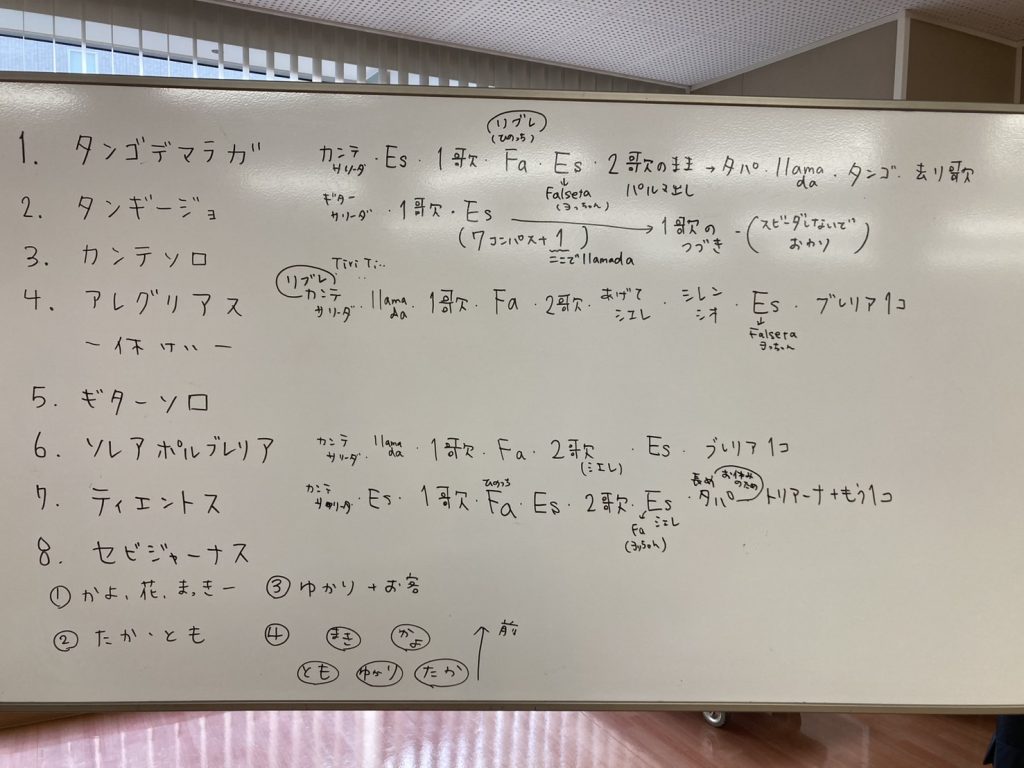 リブレ
(ひのっち)
1. タンゴデマラガ カンテサリーダ・Es・1歌・Fa・Es・2歌のまま→タパ・llamada・タンゴ・去り歌
↓
Falseta パルマ出し
(ヨっちゃん)
2. タンギージョ ギターサリーダ・1歌・Es → 1歌のつづき - (スピーダしないでおわり)
(7コンパス+1)
ここでllamada
3. カンテソロ
Tiri Ti..
リブレ
4. アレグリアス カンテサリーダ・llamada・1歌・Fa・2歌・あげてシエレ・シレンシオ・Es・ブレリア1コ
↓
Falseta
ヨっちゃん
ー休けいー
5. ギターソロ
6. ソレアポルブレリア カンテサリーダ・llamada・1歌・Fa・2歌・Es・ブレリア1コ
(シエレ)
ひのっち 長め お休みのため
7. ティエントス カンテサリーダ・Es・1歌・Fa・Es・2歌・Es・タパートリアーナ+もう1コ
↓ シエレ
Fa
(ヨっちゃん)
8. セビジャーナス
① かよ、花、まっきー ③ ゆかり+お客
② たか・とも ④ まき かよ ↑前
とも ゆかり たか